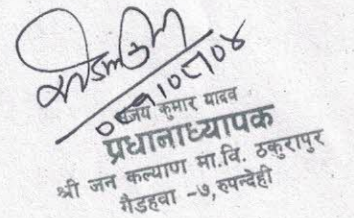 जय कुमार यादव
प्रधानाध्यापक
श्री जन कल्याण मा.वि. ठकुरापुर
गैडहवा -७, रुपन्देही